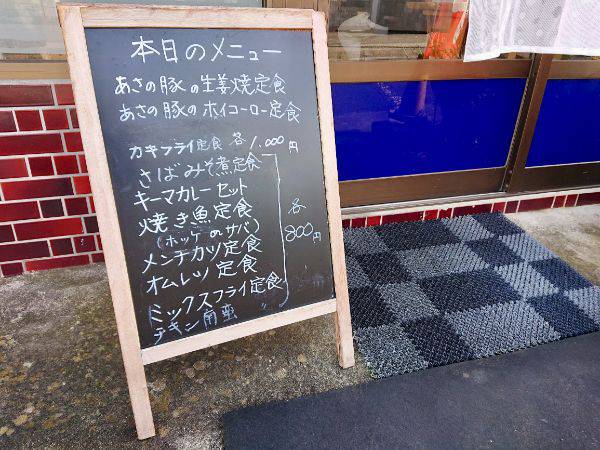 本日のメニュー
あさの豚の生姜焼定食
あさの豚のホイコーロー定食
カキフライ定食 各1,000円
さばみそ煮定食
キーマカレーセット
焼き魚定食
(ホッケ の サバ)
メンチカツ定食
オムレツ定食
ミックスフライ定食
チキン南蛮
各
800円